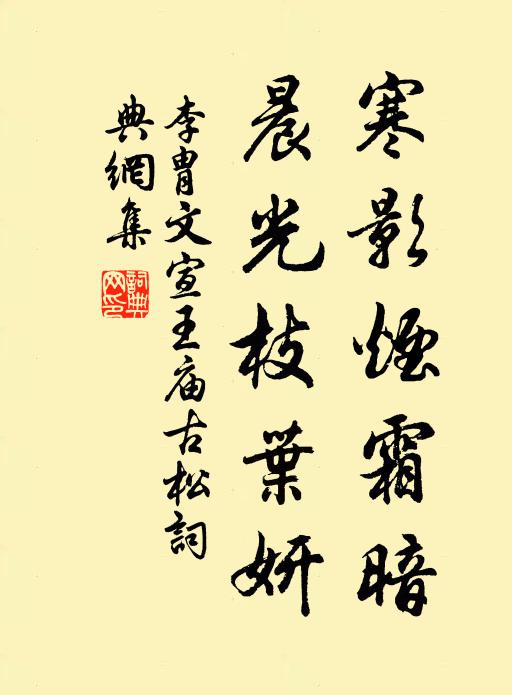 寒影煙霜暗
晨光枝葉妍
李胄文宣王庙古松詞
典網集
詞典
网印